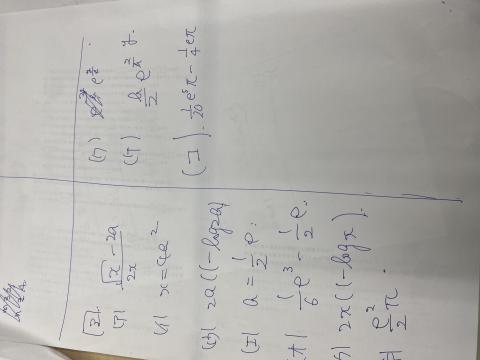 [3].
(ア) \frac{\sqrt{x}-2a}{2x}
(イ) x=4a^2
(ウ) 2a(1-log2a)
(エ) a=\frac{1}{2}e.
(オ) \frac{1}{6}e^3-\frac{1}{2}e.
(カ) 2x(1-logx).
(キ) \frac{e^2}{2}π.
(ク)
(ケ)
(コ) \frac{1}{20}e^5π-\frac{1}{4}eπ